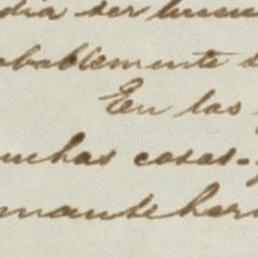 dia ser buen
obablemente
En las
uchas cosas-
mause her